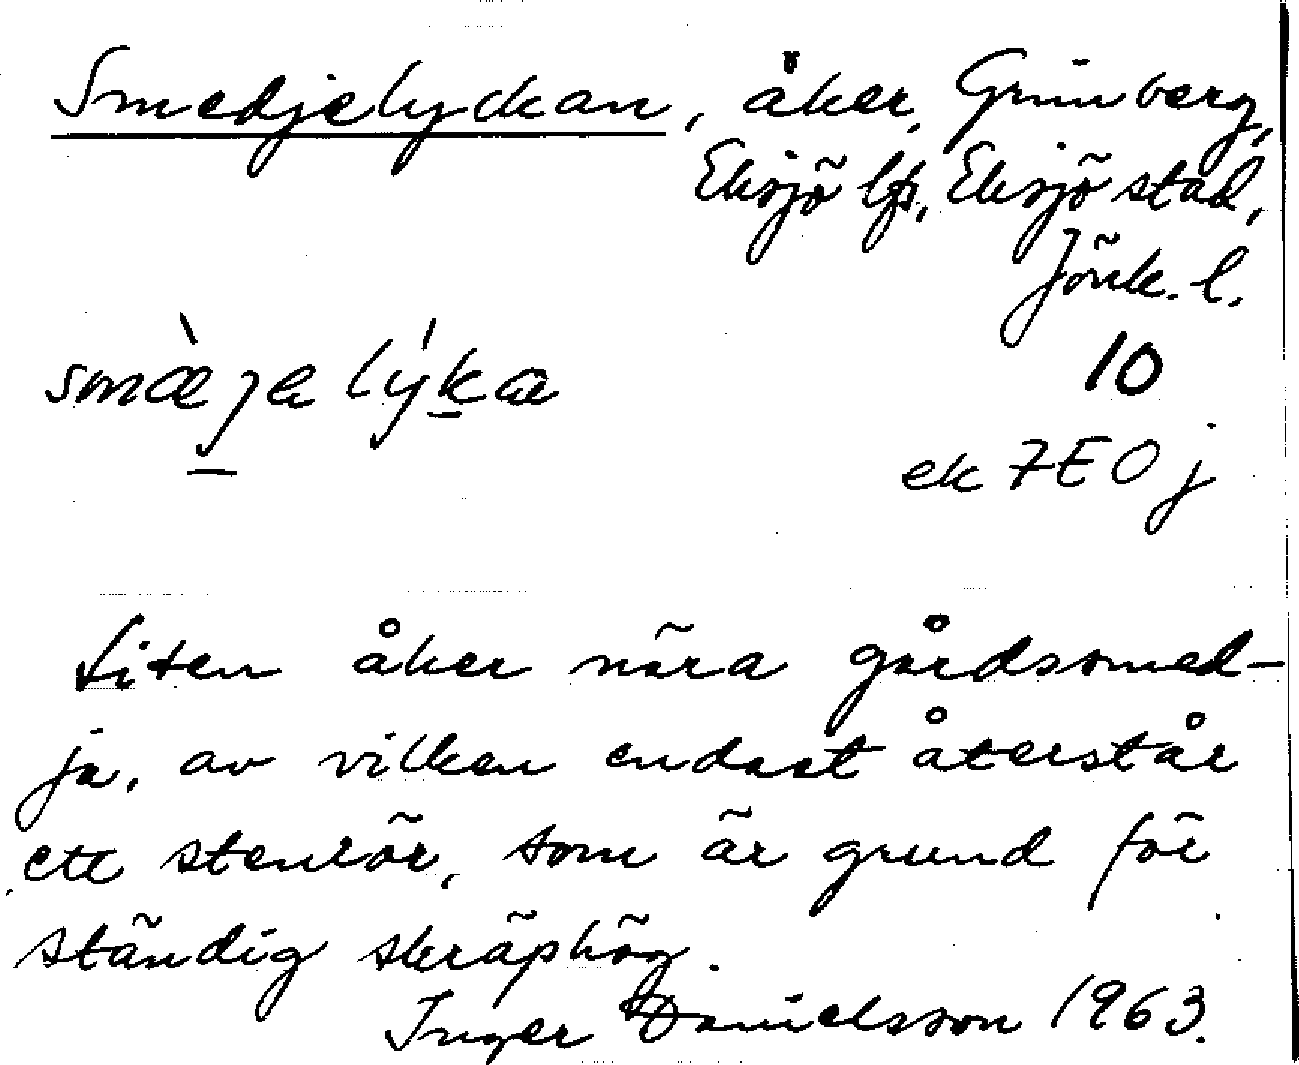 Smedjelyckan, åker, Grünberg,
Eksjö lfs, Eksjö stad,
Jönk. l.
10
ek 7E0j
Liten åker nära gårdssmed-
ja, av vilken endast återstår
ett stenrör, som är grund för
ständig skräphög.
Inger Danielsson 1963.